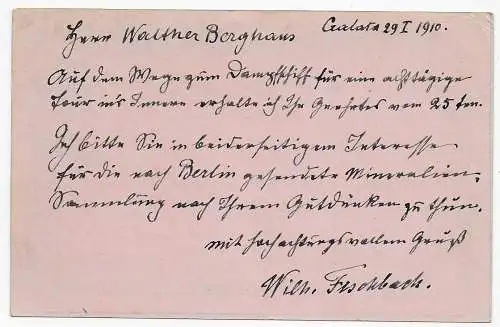 Galata 29 I 1910.
Herrn Walther Borghaus
Auf dem Wege zum Dampfschiff für eine achttägige
Tour ins Innere erhalte ich Ihr Geehrtes vom 25 ten.
Ich bitte Sie in beiderseitigem Interesse
für die nach Berlin gesendete Mineralien-
Sammlung nach Ihrem Gutdünken zu thun.
mit hochachtungsvollem Gruß
Wilh. Feschbach.